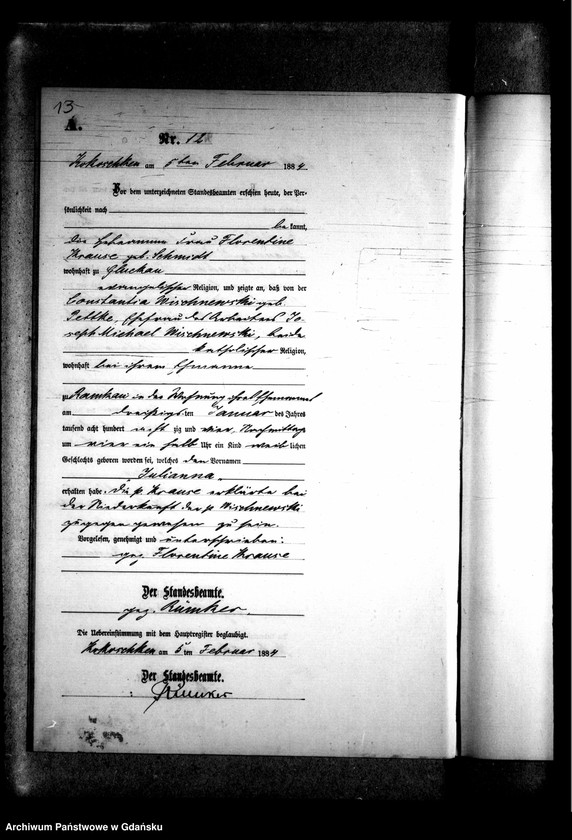 13
A.
Nr. 12
Kokoschken am 5ten Februar 1884
Vor dem unterzeichneten Standesbeamten erschien heute, der Per-
sönlichkeit nach
bekannt,
die Hebamme Frau Florentine
Krause geb. Schmidt
wohnhaft zu Gluckau
evangelischer Religion, und zeigte an, daß von der
Constantia Wischnewski geb.
Pettke, Ehefrau des Arbeiters Jo-
seph Michael Wischnewski, beide
katholischer Religion,
wohnhaft bei ihrem Ehemanne
zu Ramkau in der Wohnung ihres Ehemannes
am dreißigsten Januar des Jahres
tausend acht hundert achtzig und vier, Nachmittags
um vier ein halb Uhr ein Kind weiblichen
Geschlechts geboren worden sei, welches den Vornamen
"Julianna"
erhalten habe. Die p. Krause erklärte bei
der Niederkunft der p Wischnewski
zugegen gewesen zu sein.
Vorgelesen, genehmigt und unterschrieben:
gez. Florentine Krause
Der Standesbeamte.
gez. Rümker
Die Uebereinstimmung mit dem Hauptregister beglaubigt.
Kokoschken am 5 ten Februar 1884
Der Standesbeamte.
Rümker
Archiwum Państwowe w Gdańsku